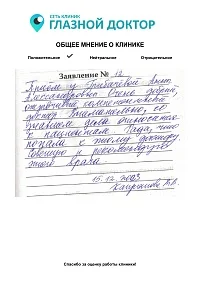 СЕТЬ КЛИНИК
ГЛАЗНОЙ ДОКТОР
ОБЩЕЕ МНЕНИЕ О КЛИНИКЕ
Положительное Нейтральное Отрицательное
Заявление № 12
Прием у
Александровны. Очень добрый,
отзывчивый,
доктор. Внимательно, со
знанием дела относится
к пациентам. Рада, что
попала к этому доктору.
и рекомендую
этого врача.
15.12.2023
Спасибо за оценку работы клиники!